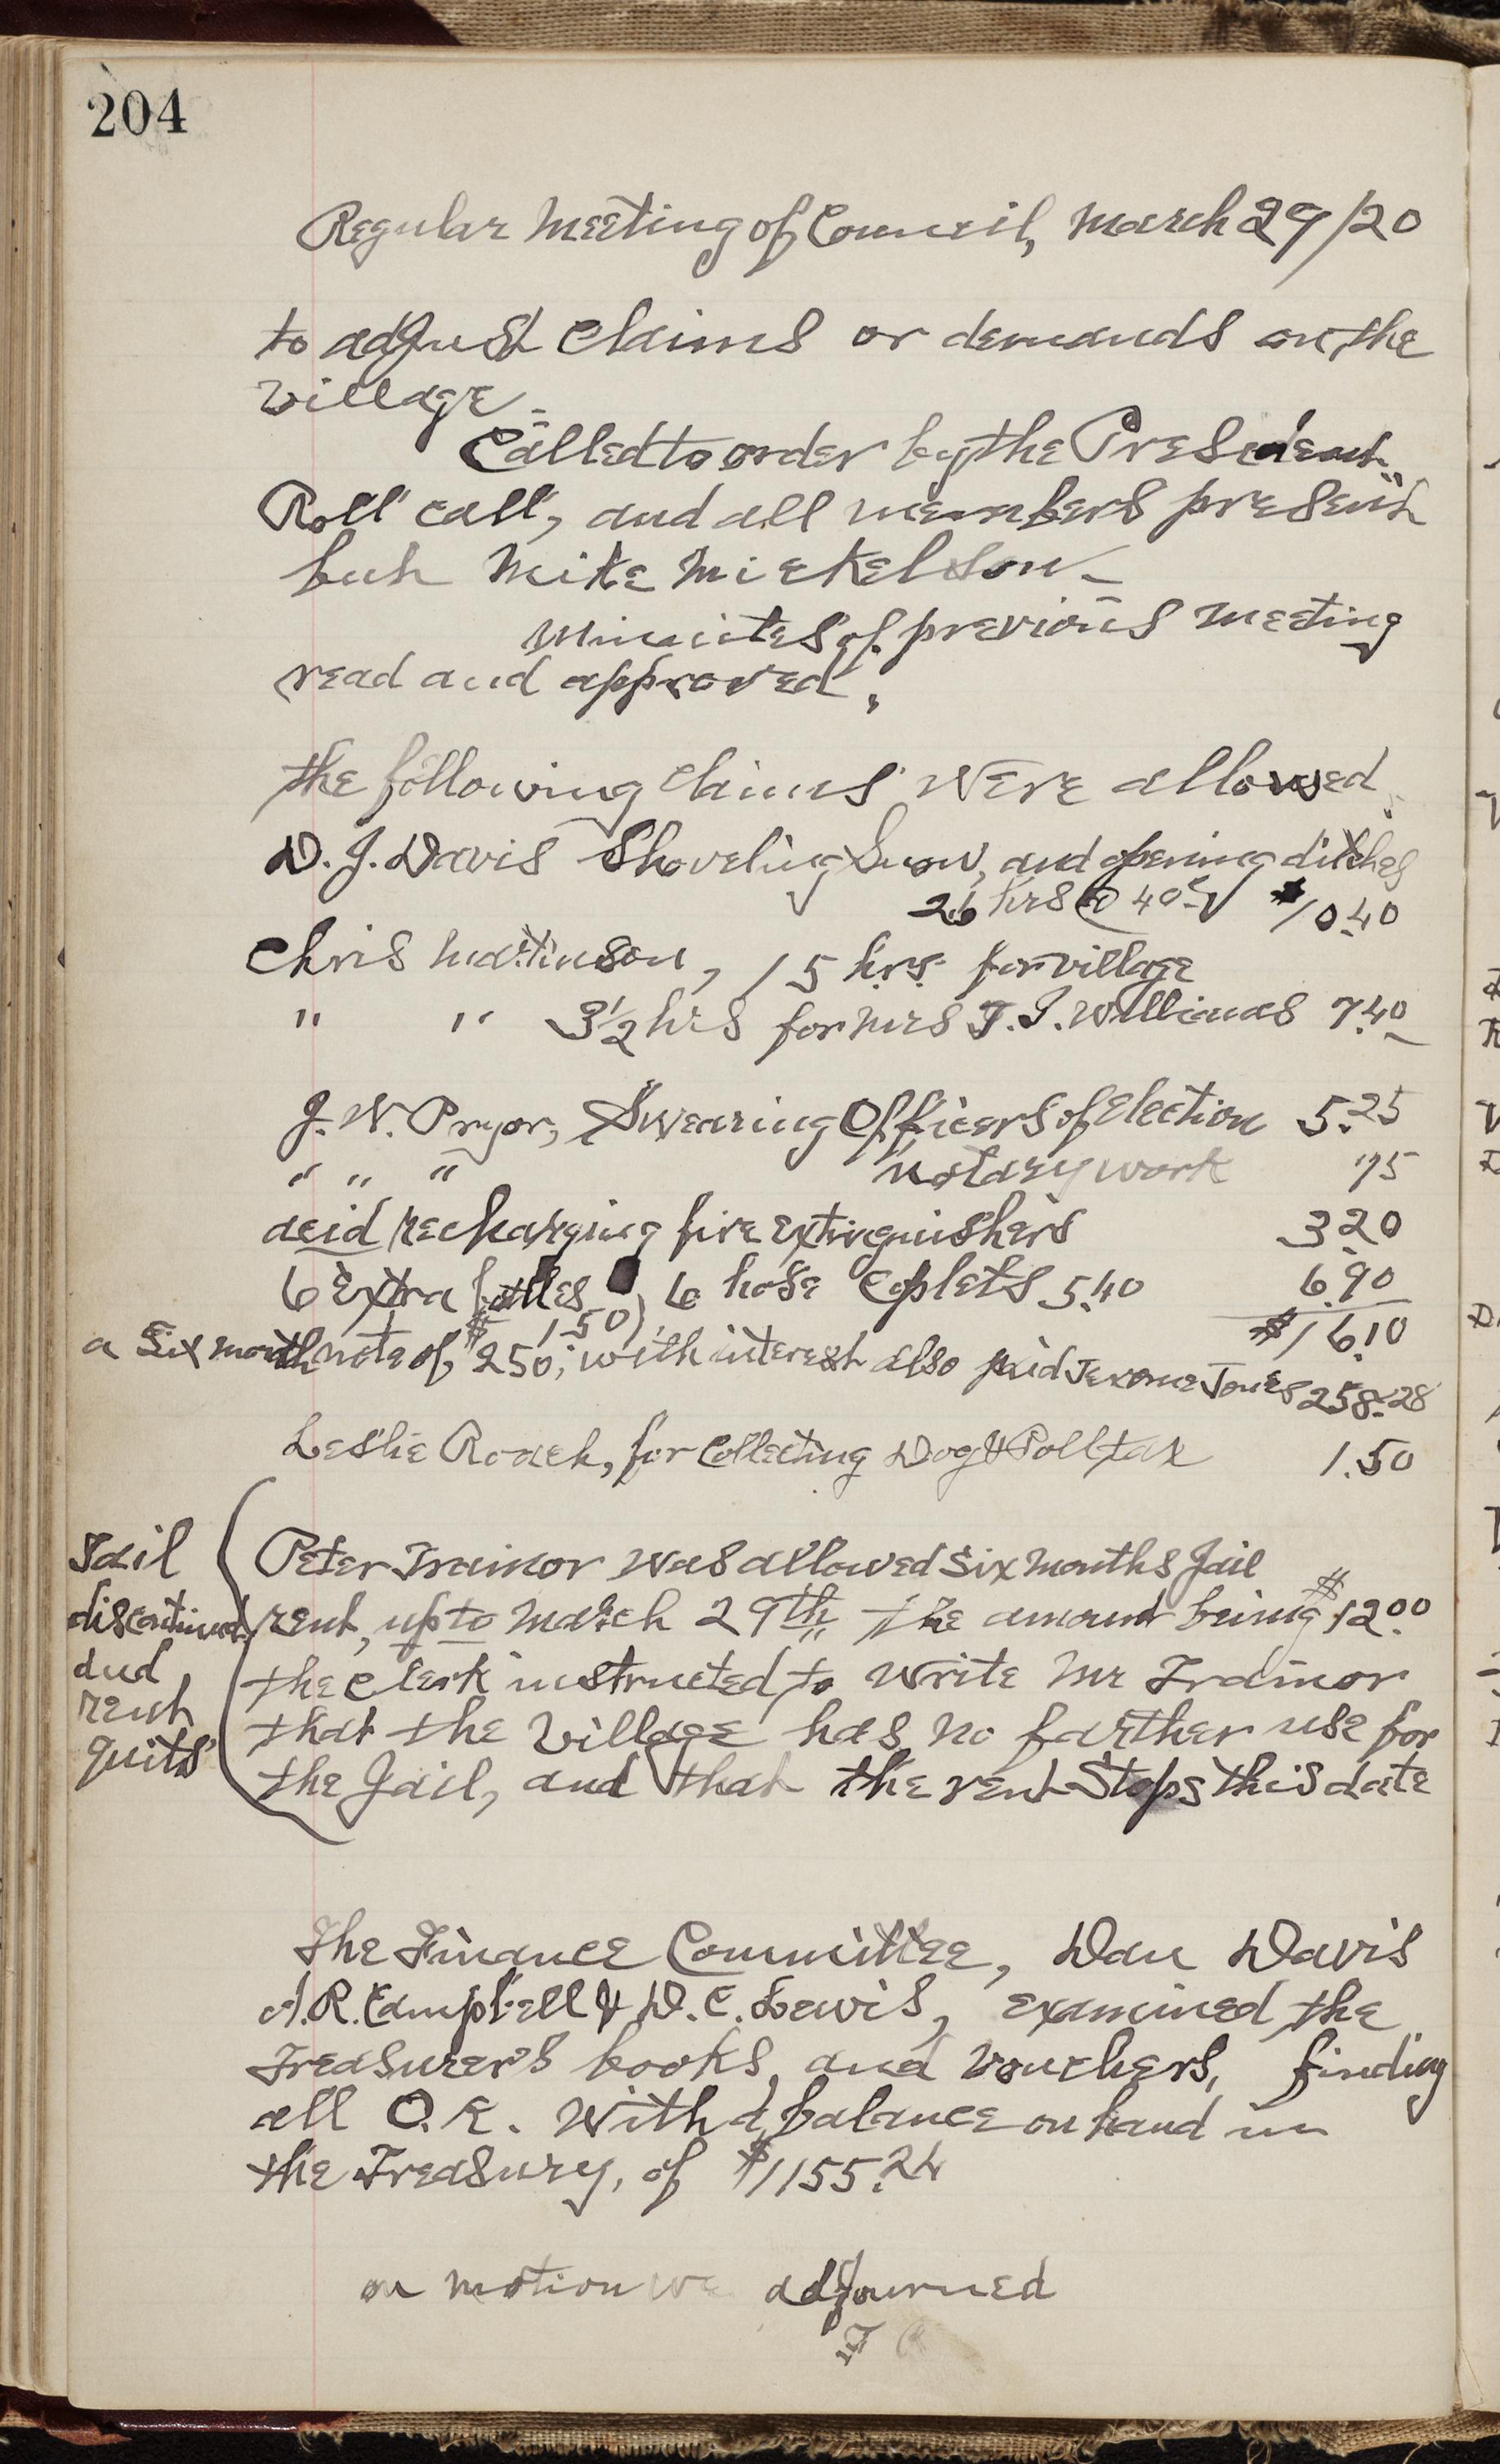 204
Regular Meeting of Council, March 29/20
to adjust Claims or demands on the
village.
Called to order by the President.
Roll call, and all members present
but Mike Mickelson
Minutes of previous meeting
read and approved.
the following claims were allowed.
D. J. Davis Shoveling Snow, and opening ditches
26 hrs @ 40¢ $10.40
Chris Martinson, 15 hrs. for village
" " 3 1/2 hrs for Mrs T. J. Williams 7.40
J. W. Pryor, Swearing Officers of Election 5.25
" " " notary work 75
acid recharging fire extinguishers 3.20
6 Extra bottles $1.50), 6 hose 5.40 6.90
$16.10
a Six month note of $250, with interest also paid Jerome Jones 258.28
Leslie Roach, for Collecting Dog & Poll tax 1.50
Jail
discontinued
and
rent
quits
Peter Trainor was allowed six months Jail
rent, up to March 29th, the amount being $12.00
the clerk instructed to write Mr Trainor
that the Village has no farther use for
the Jail, and that the rent Stops this date
The Finance Committee, Dan Davis
A. R. Campbell & D. C. Lewis, examined the
Treasurer's books, and vouchers, finding
all O.K. with a balance on hand in
the Treasury, of $1155.24
on motion we adjourned